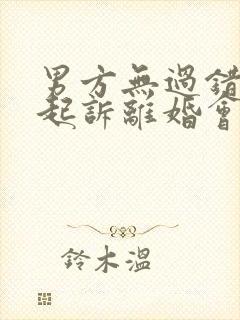 男方無過錯
起訴離婚會
鈴木溫